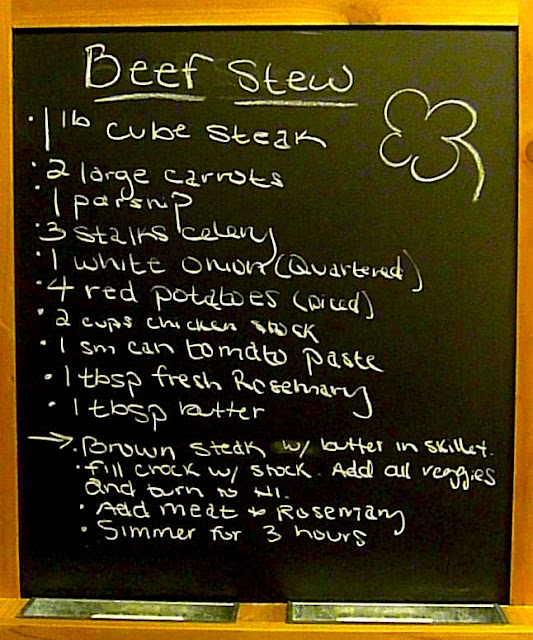 Beef Stew
· 1 lb cube steak
· 2 large carrots
· 1 parsnip
· 3 stalks celery
· 1 white onion (Quartered)
· 4 red potatoes (diced)
· 2 cups chicken stock
· 1 sm can tomato paste
· 1 tbsp fresh Rosemary
· 1 tbsp butter
→ · Brown steak w/ butter in skillet.
· fill crock w/ stock. Add all veggies
and turn to HI.
· Add meat & Rosemary
· Simmer for 3 hours